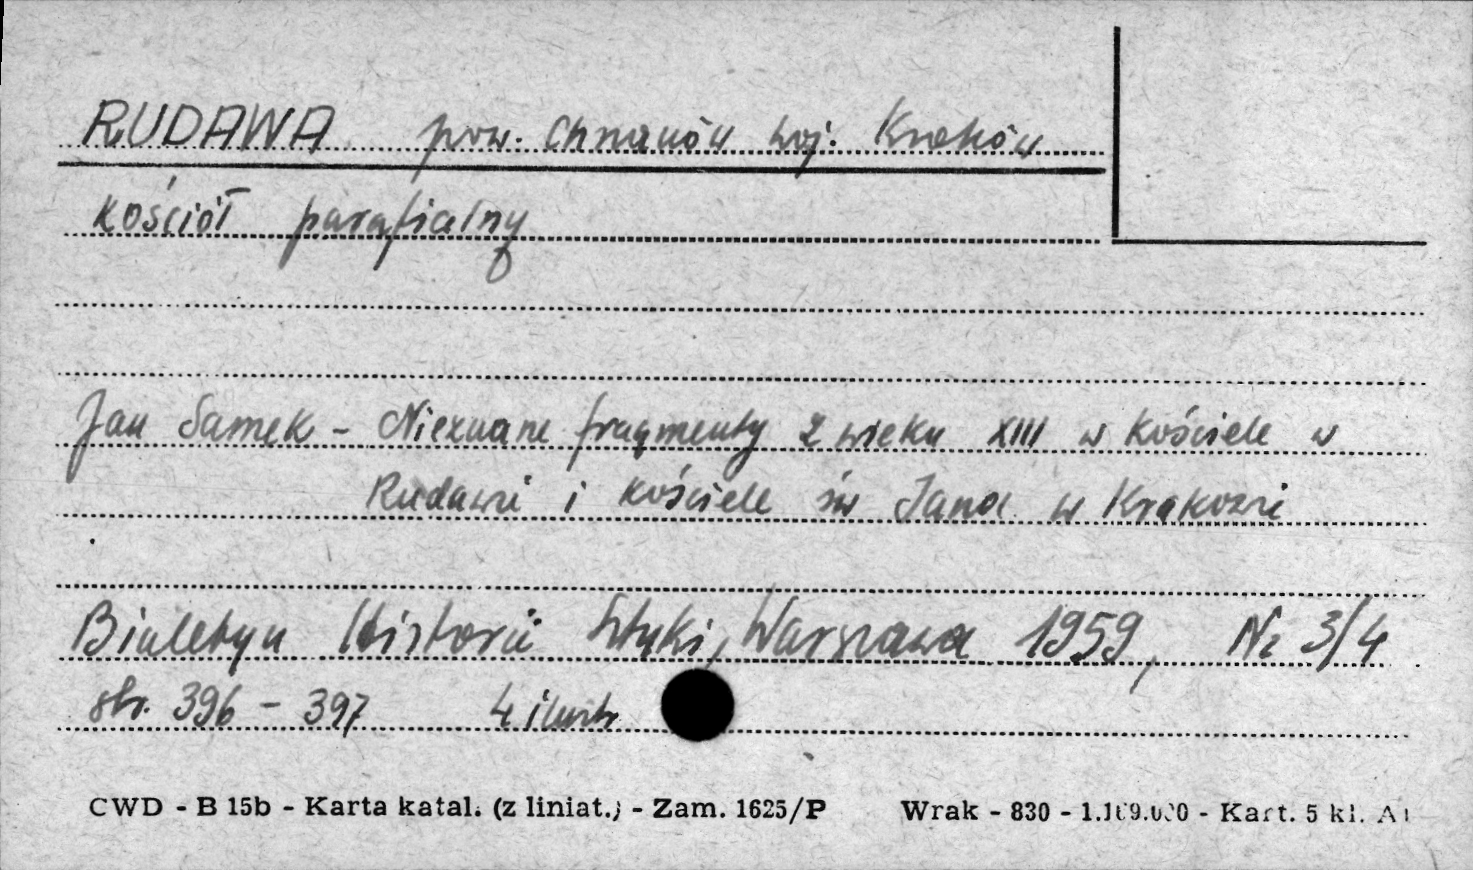 RUDAWA pow. Chrzanów woj. Kraków
Kościół parafialny
Jan Samek - Nieznane fragmenty z wieku XIII w kościele w
Rudawi i kościele św Jana w Krakowi
Biuletyn Historii Sztuki, Warszawa 1959, Nr 3/4
str. 396 - 397 4 ilustr
CWD - B 15b - Karta katal. (z liniat.) - Zam. 1625/P Wrak - 830 - - Kart. 5 kl.